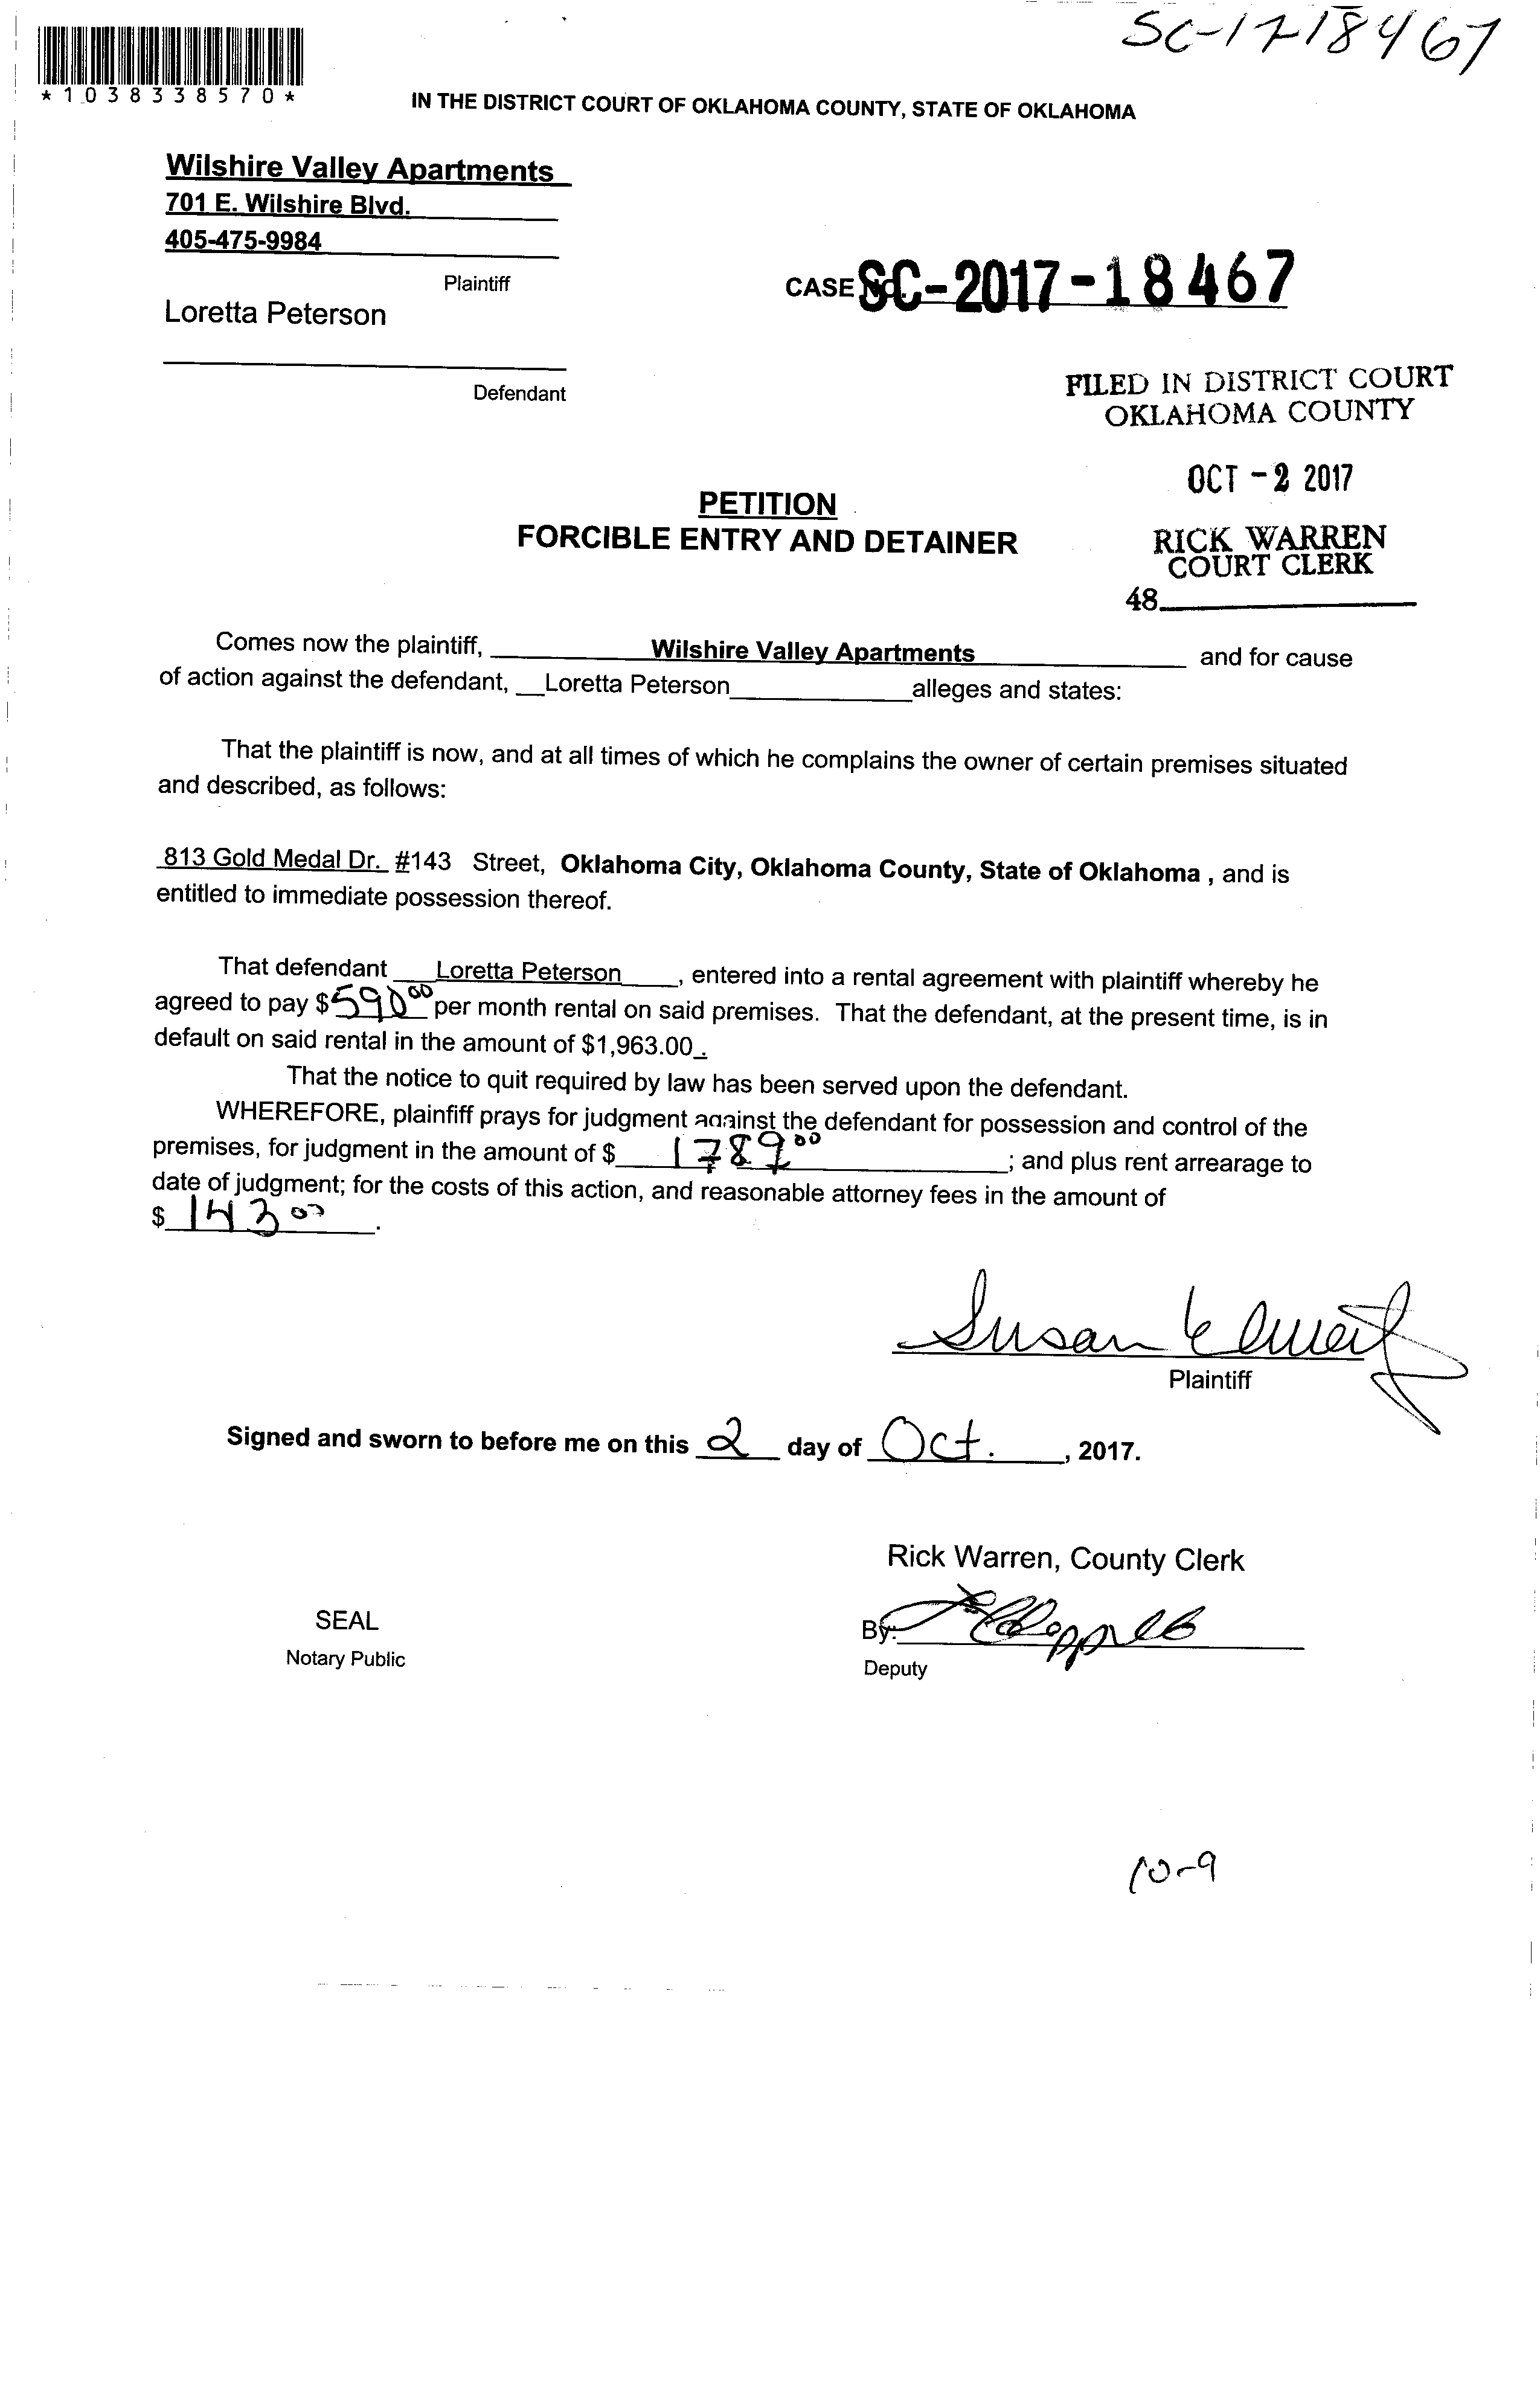 SC-17-18467
*1038338570*
IN THE DISTRICT COURT OF OKLAHOMA COUNTY, STATE OF OKLAHOMA
Wilshire Valley Apartments
701 E. Wilshire Blvd.
405-475-9984
Plaintiff
CASE No. SC-2017-18467
Loretta Peterson
Defendant
FILED IN DISTRICT COURT
OKLAHOMA COUNTY
OCT -2 2017
PETITION
FORCIBLE ENTRY AND DETAINER
RICK WARREN
COURT CLERK
48
Comes now the plaintiff, Wilshire Valley Apartments and for cause
of action against the defendant, Loretta Peterson alleges and states:
That the plaintiff is now, and at all times of which he complains the owner of certain premises situated
and described, as follows:
813 Gold Medal Dr. #143 Street, Oklahoma City, Oklahoma County, State of Oklahoma , and is
entitled to immediate possession thereof.
That defendant Loretta Peterson , entered into a rental agreement with plaintiff whereby he
agreed to pay $590 00 per month rental on said premises. That the defendant, at the present time, is in
default on said rental in the amount of $1,963.00 .
That the notice to quit required by law has been served upon the defendant.
WHEREFORE, plainfiff prays for judgment against the defendant for possession and control of the
premises, for judgment in the amount of $ 1789 00 ; and plus rent arrearage to
date of judgment; for the costs of this action, and reasonable attorney fees in the amount of
$ 143 00 .
Susan
Plaintiff
Signed and sworn to before me on this 2 day of Oct. , 2017.
Rick Warren, County Clerk
SEAL
By:
Notary Public
Deputy
10-9